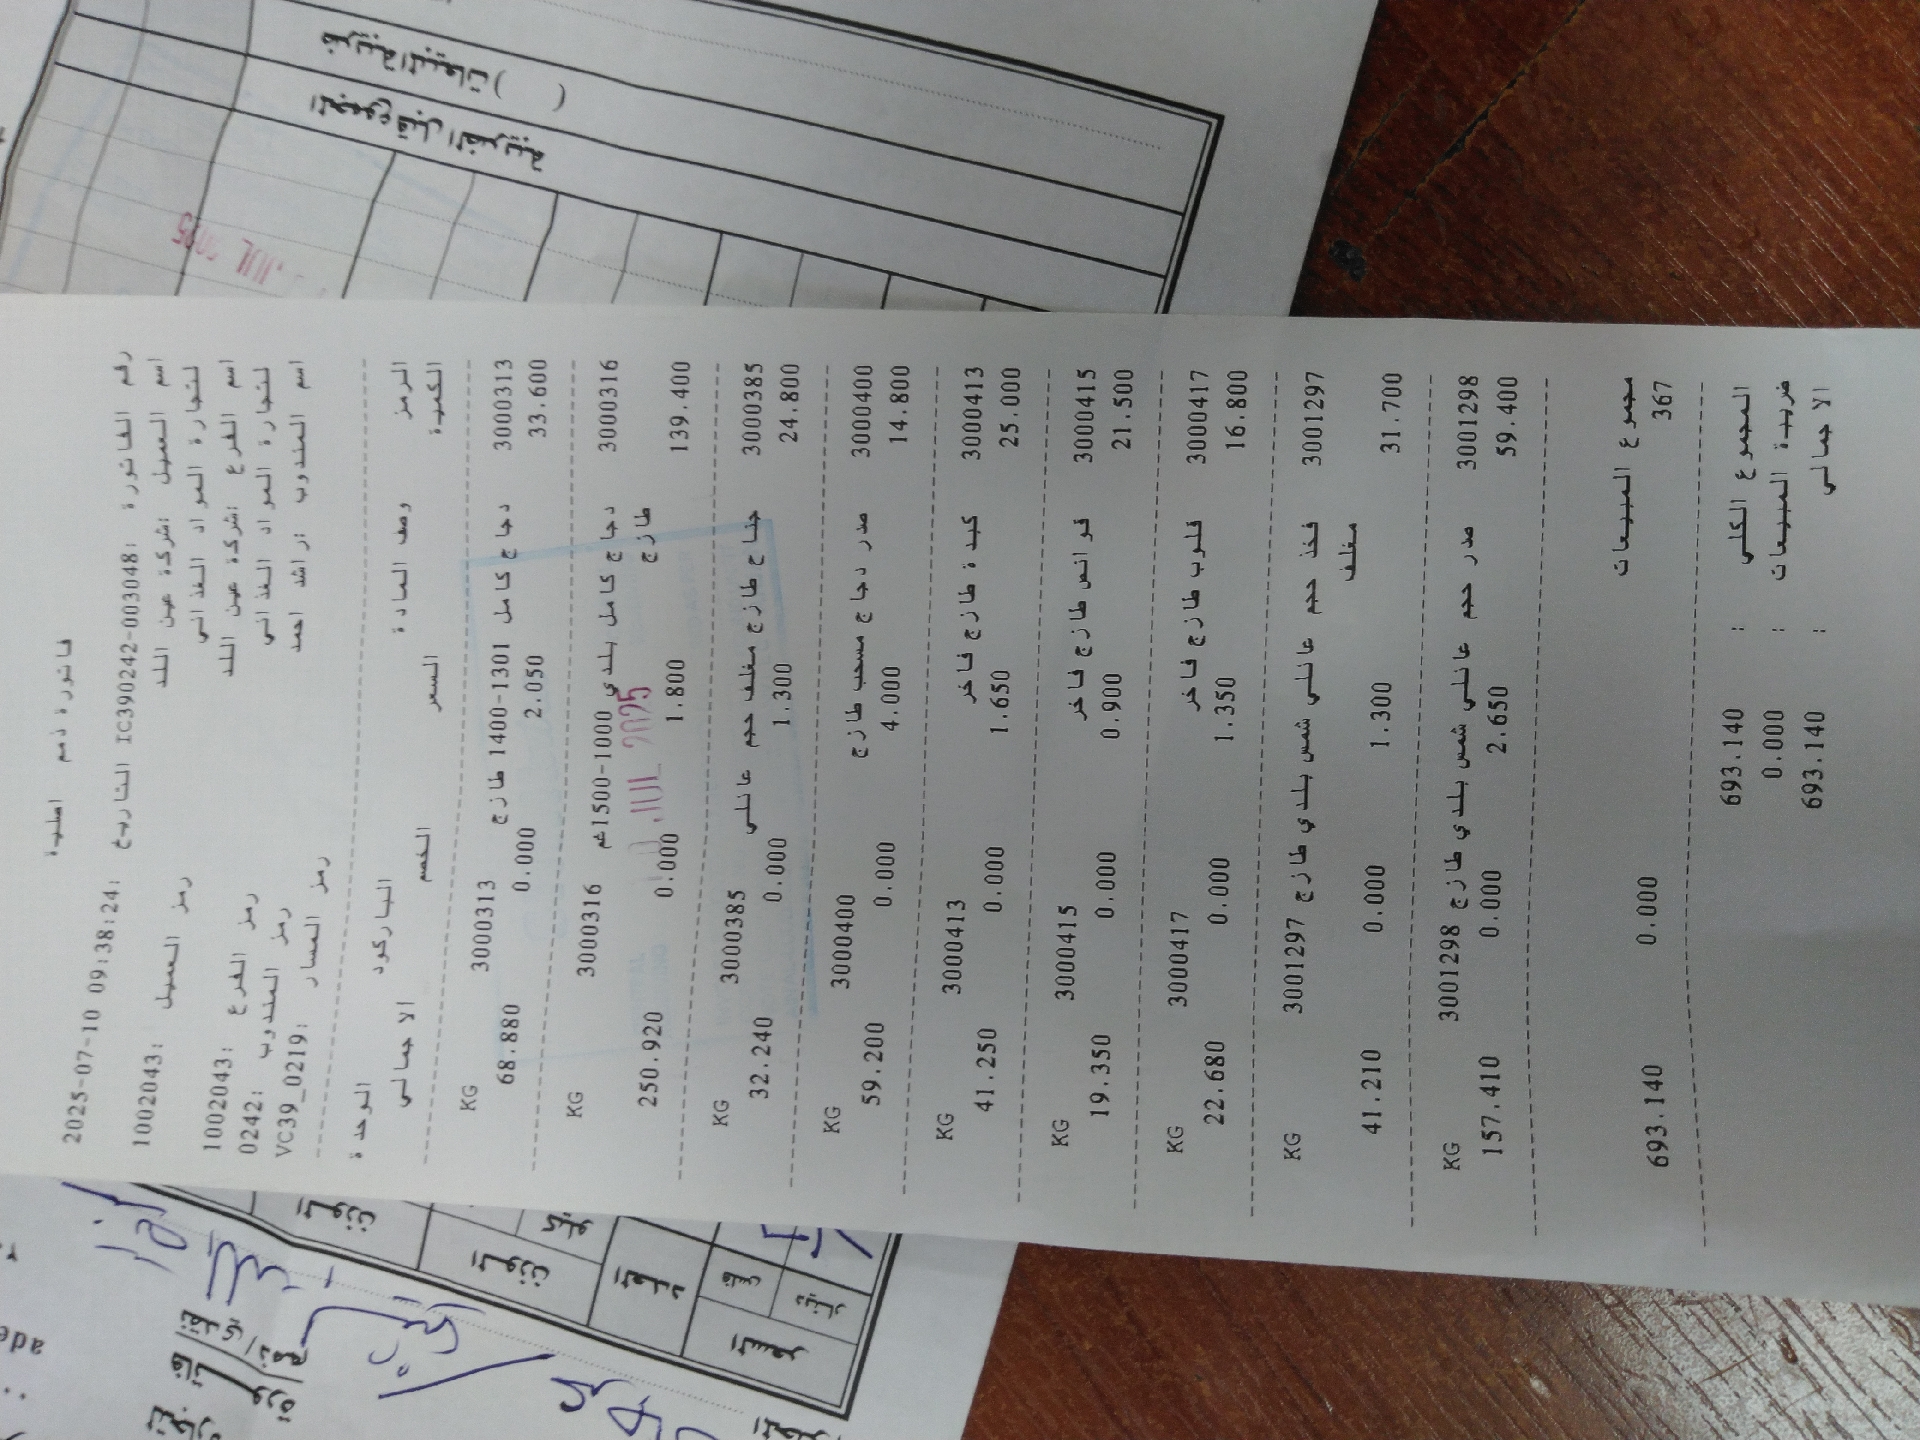 فاتورة ذمم اصلية
رقم الفاتورة :IC390242-003048 التاريخ :2025-07-10 09:38:24
اسم العميل :شركة عين اللد لتجارة المواد الغذائي
رمز العميل :1002043
اسم الفرع :شركة عين اللد لتجارة المواد الغذائي
رمز الفرع :1002043
اسم المندوب :راشد احمد
رمز المندوب :0242
رمز المسار :VC39_0219
الرمز وصف المادة الباركود الوحدة
الكمية السعر الخصم الاجمالي
3000313 دجاج كامل 1301-1400 طازج 3000313 KG
33.600 2.050 0.000 68.880
3000316 دجاج كامل بلدي 1000-1500غم 3000316 KG
طازج
139.400 1.800 0.000 250.920
3000385 جناح طازج مغلف حجم عائلي 3000385 KG
24.800 1.300 0.000 32.240
3000400 صدر دجاج مسحب طازج 3000400 KG
14.800 4.000 0.000 59.200
3000413 كبدة طازج فاخر 3000413 KG
25.000 1.650 0.000 41.250
3000415 قوانص طازج فاخر 3000415 KG
21.500 0.900 0.000 19.350
3000417 قلوب طازج فاخر 3000417 KG
16.800 1.350 0.000 22.680
3001297 فخذ حجم عائلي شمس بلدي طازج 3001297 KG
مغلف
31.700 1.300 0.000 41.210
3001298 صدر حجم عائلي شمس بلدي طازج 3001298 KG
59.400 2.650 0.000 157.410
مجموع المبيعات
367 0.000 693.140
المجموع الكلي : 693.140
ضريبة المبيعات : 0.000
الاجمالي : 693.140
JUL 2025
المجموع قبل الضريبة
ضريبة المبيعات ( )
JUL 2025
الوزن
الوزن
كيلو
العدد
السعر